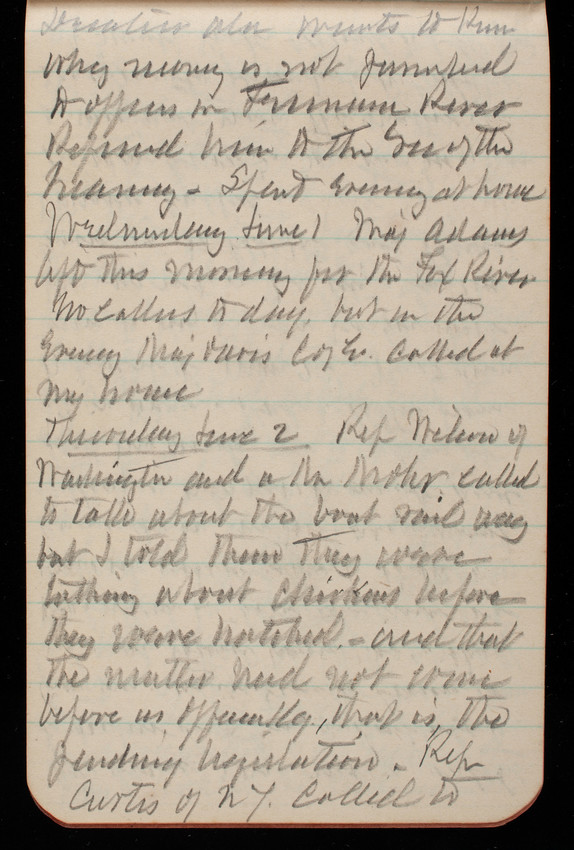 Decatur Ala wants to know
why money is not furnished
to officer in Tennessee River
Referred him to the Sec of the
Treasury - Spent Evening at home
Wednesday June 1 Maj Adams
left this morning for the Fox River
No callers to day, but in the
Evening Maj Davis Co Eng. called at
my home
Thursday June 2. Rep Wilson of
Washington and a Mr Mohr called
to talk about the boat rail way
but I told them they were
talking about chickens before
they were hatched. - and that
the matter need not come
before us officially, that is, the
pending legislation - Rep
Curtis of N Y. called to